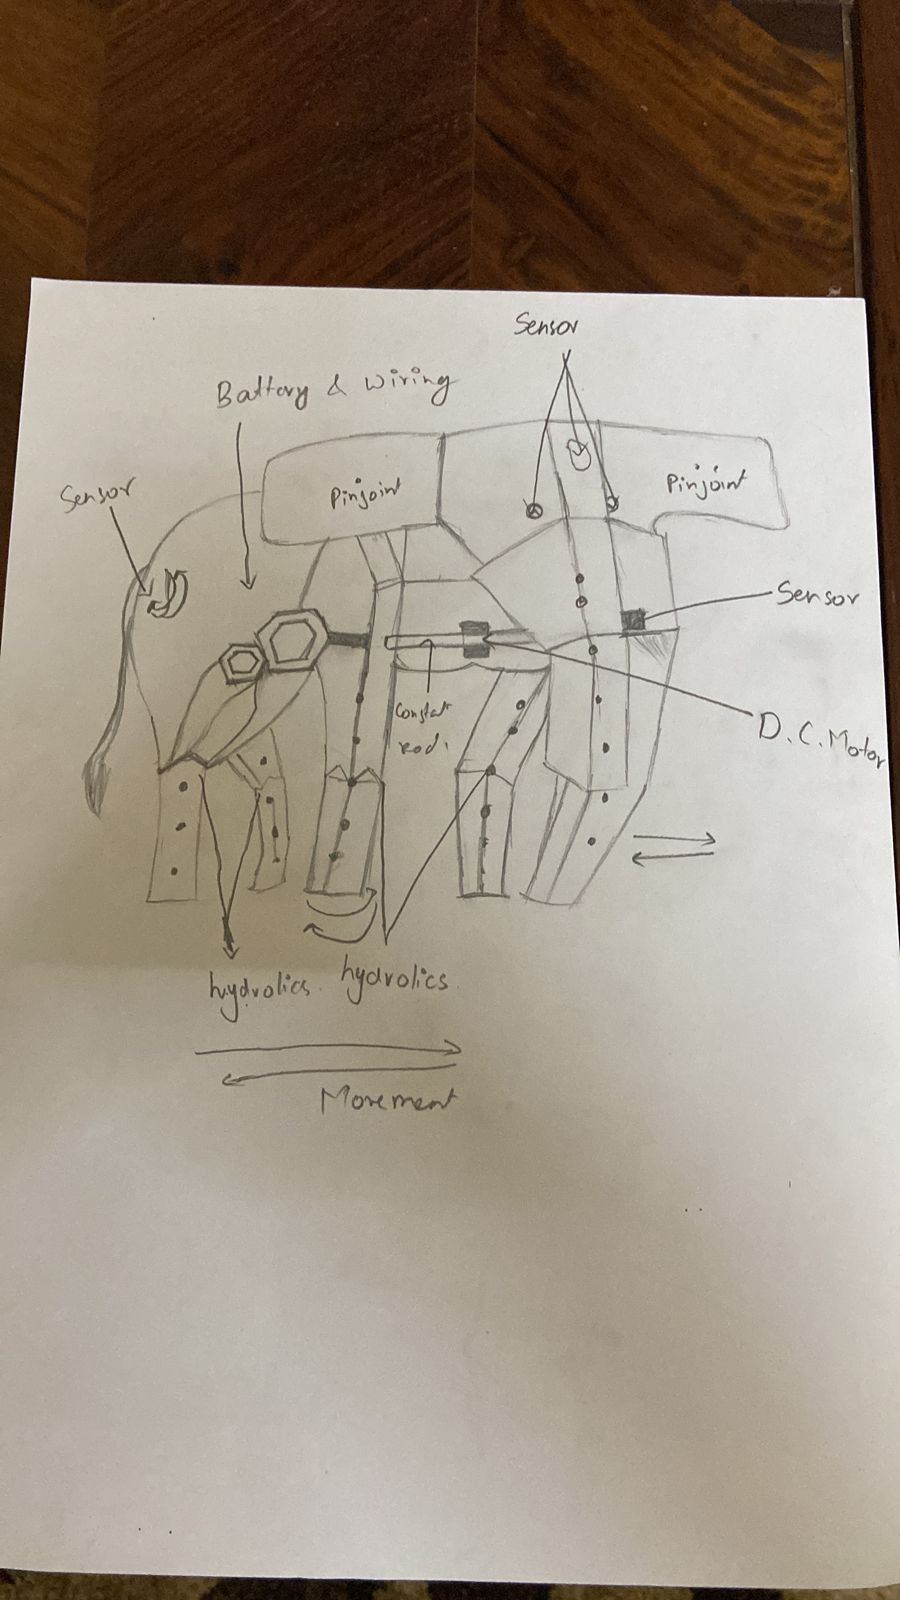 Sensor
Battery & wiring
Sensor
Pinjoint
Pinjoint
Sensor
Constat
rod.
D.C.Motor
hydrolics.
hydrolics.
Movement